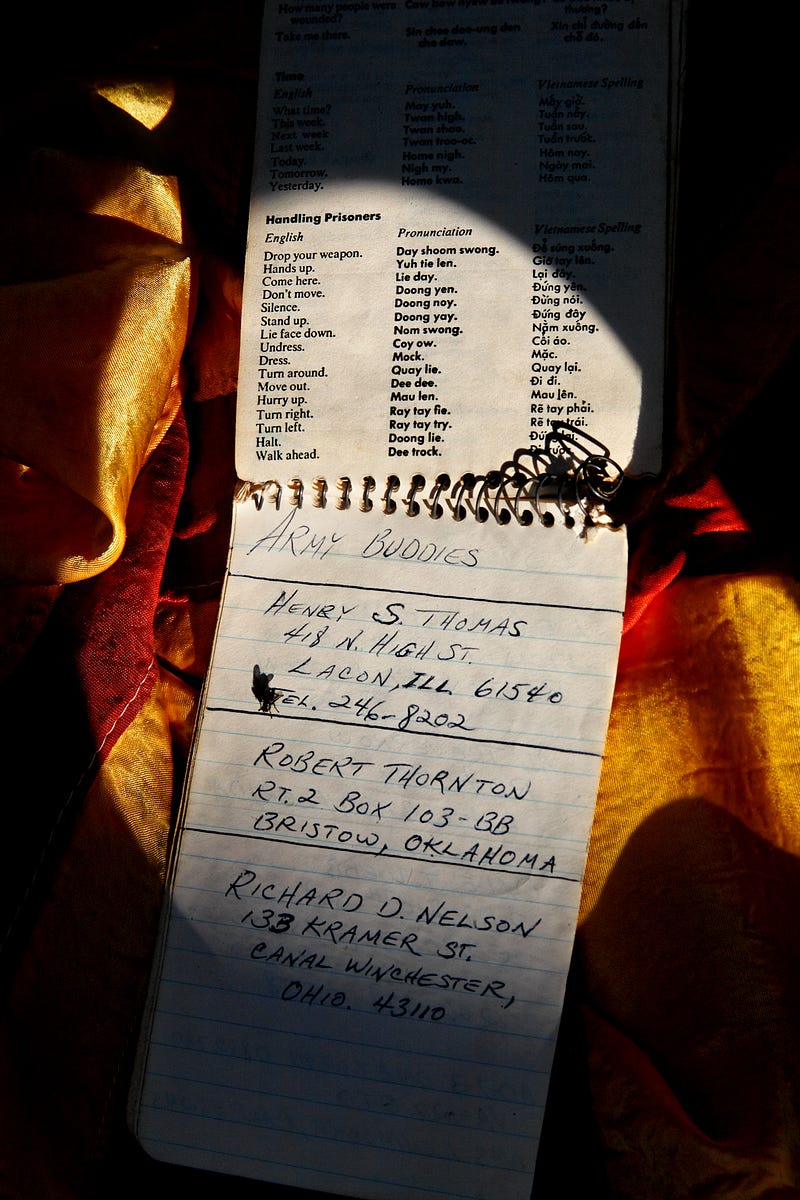 How many people were wounded?
Take me there. Sin chee doo-ung den che daw. Xin chỉ đường đến chỗ đó.
Time
English Pronunciation Vietnamese Spelling
What time? May yuh. Mấy giờ.
This week. Twan nigh. Tuần nầy.
Next week Twan shao. Tuần sau.
Last week. Twan troo-oc. Tuần trước.
Today. Home nigh. Hôm nay.
Tomorrow. Nigh my. Ngày mai.
Yesterday. Home kwa. Hôm qua.
Handling Prisoners
English Pronunciation Vietnamese Spelling
Drop your weapon. Day shoom swong. Để súng xuống.
Hands up. Yuh tie len. Giơ tay lên.
Come here. Lie day. Lại đây.
Don't move. Doong yen. Đứng yên.
Silence. Doong noy. Đừng nói.
Stand up. Doong yay. Đứng đậy
Lie face down. Nom swong. Nằm xuống.
Undress. Coy ow. Cỏi áo.
Dress. Mock. Mặc.
Turn around. Quay lie. Quay lại.
Move out. Dee dee. Đi đi.
Hurry up. Mau len. Mau lên.
Turn right. Ray tay fie. Rẽ tay phải.
Turn left. Ray tay try. Rẽ tay trái.
Halt. Doong lie.
Walk ahead. Dee trock.
ARMY BUDDIES
HENRY S. THOMAS
418 N. HIGH ST.
LACON, ILL 61540
TEL. 246-8202
ROBERT THORNTON
RT. 2 BOX 103-BB
BRISTOW, OKLAHOMA
RICHARD D. NELSON
133 KRAMER ST.
CANAL WINCHESTER,
OHIO. 43110